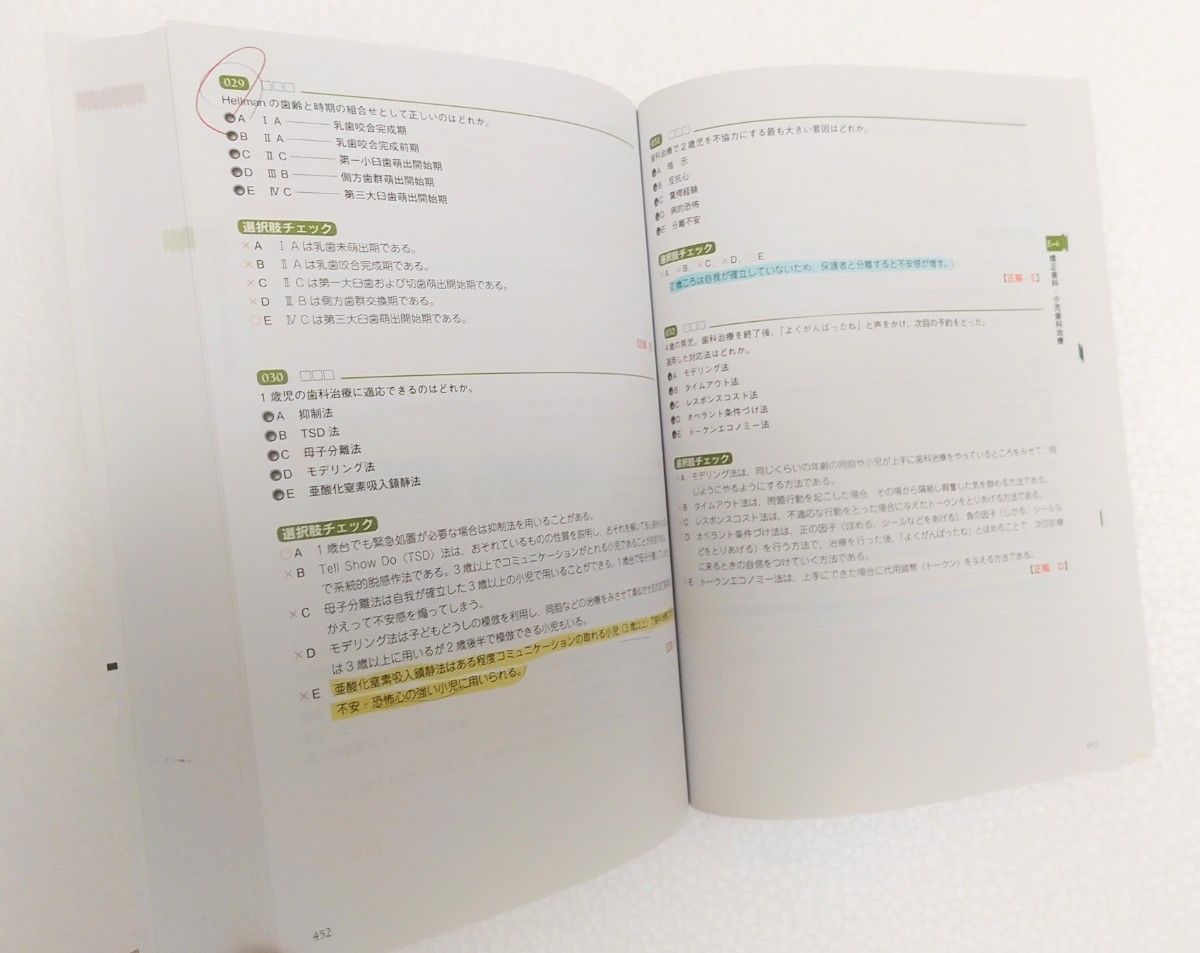 029 □□□
Hellman の歯齢と時期の組合せとして正しいのはどれか。
A ⅠA――― 乳歯咬合完成期
B ⅡA――― 乳歯咬合完成前期
C ⅡC――― 第一小臼歯萌出開始期
D ⅢB――― 側方歯群萌出開始期
E ⅣC――― 第三大臼歯萌出開始期
選択肢チェック
×A ⅠAは乳歯未萌出期である。
×B ⅡAは乳歯咬合完成期である。
×C ⅡCは第一大臼歯および切歯萌出開始期である。
×D ⅢBは側方歯群交換期である。
○E ⅣCは第三大臼歯萌出開始期である。
【正解
030 □□□
1歳児の歯科治療に適応できるのはどれか。
A 抑制法
B TSD法
C 母子分離法
D モデリング法
E 亜酸化窒素吸入鎮静法
選択肢チェック
○A 1歳台でも緊急処置が必要な場合は抑制法を用いることがある。
×B Tell Show Do（TSD）法は、おそれているものの性質を説明し、おそれを解いて
で系統的脱感作法である。3歳以上でコミュニケーションがとれる小児であることが
×C 母子分離法は自我が確立した3歳以上の小児で用いることができる。1歳台で母子分離
かえって不安感を煽ってしまう。
×D モデリング法は子どもどうしの模倣を利用し、同胞などの治療をみさせて
は3歳以上に用いるが2歳後半で模倣できる小児もいる。
×E 亜酸化窒素吸入鎮静法はある程度コミュニケーションの取れる小児（3歳以上）で
不安・恐怖心の強い小児に用いられる。
452
031 □□□
歯科治療で2歳児を不協力にする最も大きい要因はどれか。
A 暗 示
B 反抗心
C 驚愕経験
D 病的恐怖
E 分離不安
選択肢チェック
×A、×B、×C、×D、○E
2歳ころは自我が確立していないため、保護者と分離すると不安感が増す。
【正解 E】
032 □□□
4歳の男児。歯科治療を終了後、「よくがんばったね」と声をかけ、次回の予約をとった。
適用した対応法はどれか。
A モデリング法
B タイムアウト法
C レスポンスコスト法
D オペラント条件づけ法
E トークンエコノミー法
選択肢チェック
×A モデリング法は、同じくらいの年齢の同胞や小児が上手に歯科治療をやっているところをみせて、同
じようにやるようにする方法である。
×B タイムアウト法は、問題行動を起こした場合、その場から隔絶し興奮した気を静める方法である。
×C レスポンスコスト法は、不適応な行動をとった場合に与えたトークンをとりあげる方法である。
D オペラント条件づけ法は、正の因子（ほめる、シールなどをあげる）、負の因子（しかる、シールな
どをとりあげる）を行う方法で、治療を行った後、「よくがんばったね」とほめることで、次回診療
に来るときの自信をつけていく方法である。
×E トークンエコノミー法は、上手にできた場合に代用貨幣（トークン）を与える方法である。
【正解 D】
E-4
矯正歯科・小児歯科治療
453